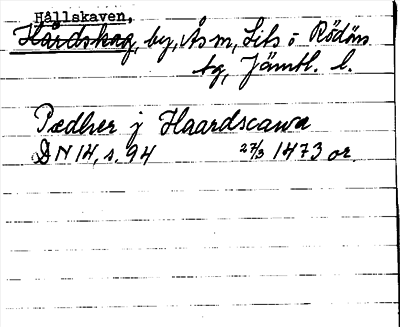 Hållskaven,
Hårdskag, by, Ås m, Lits o Rödöns
tg, Jämtl. l.
Pædher j Haardscawa
DN 14, s. 94 27/3 1473 or.